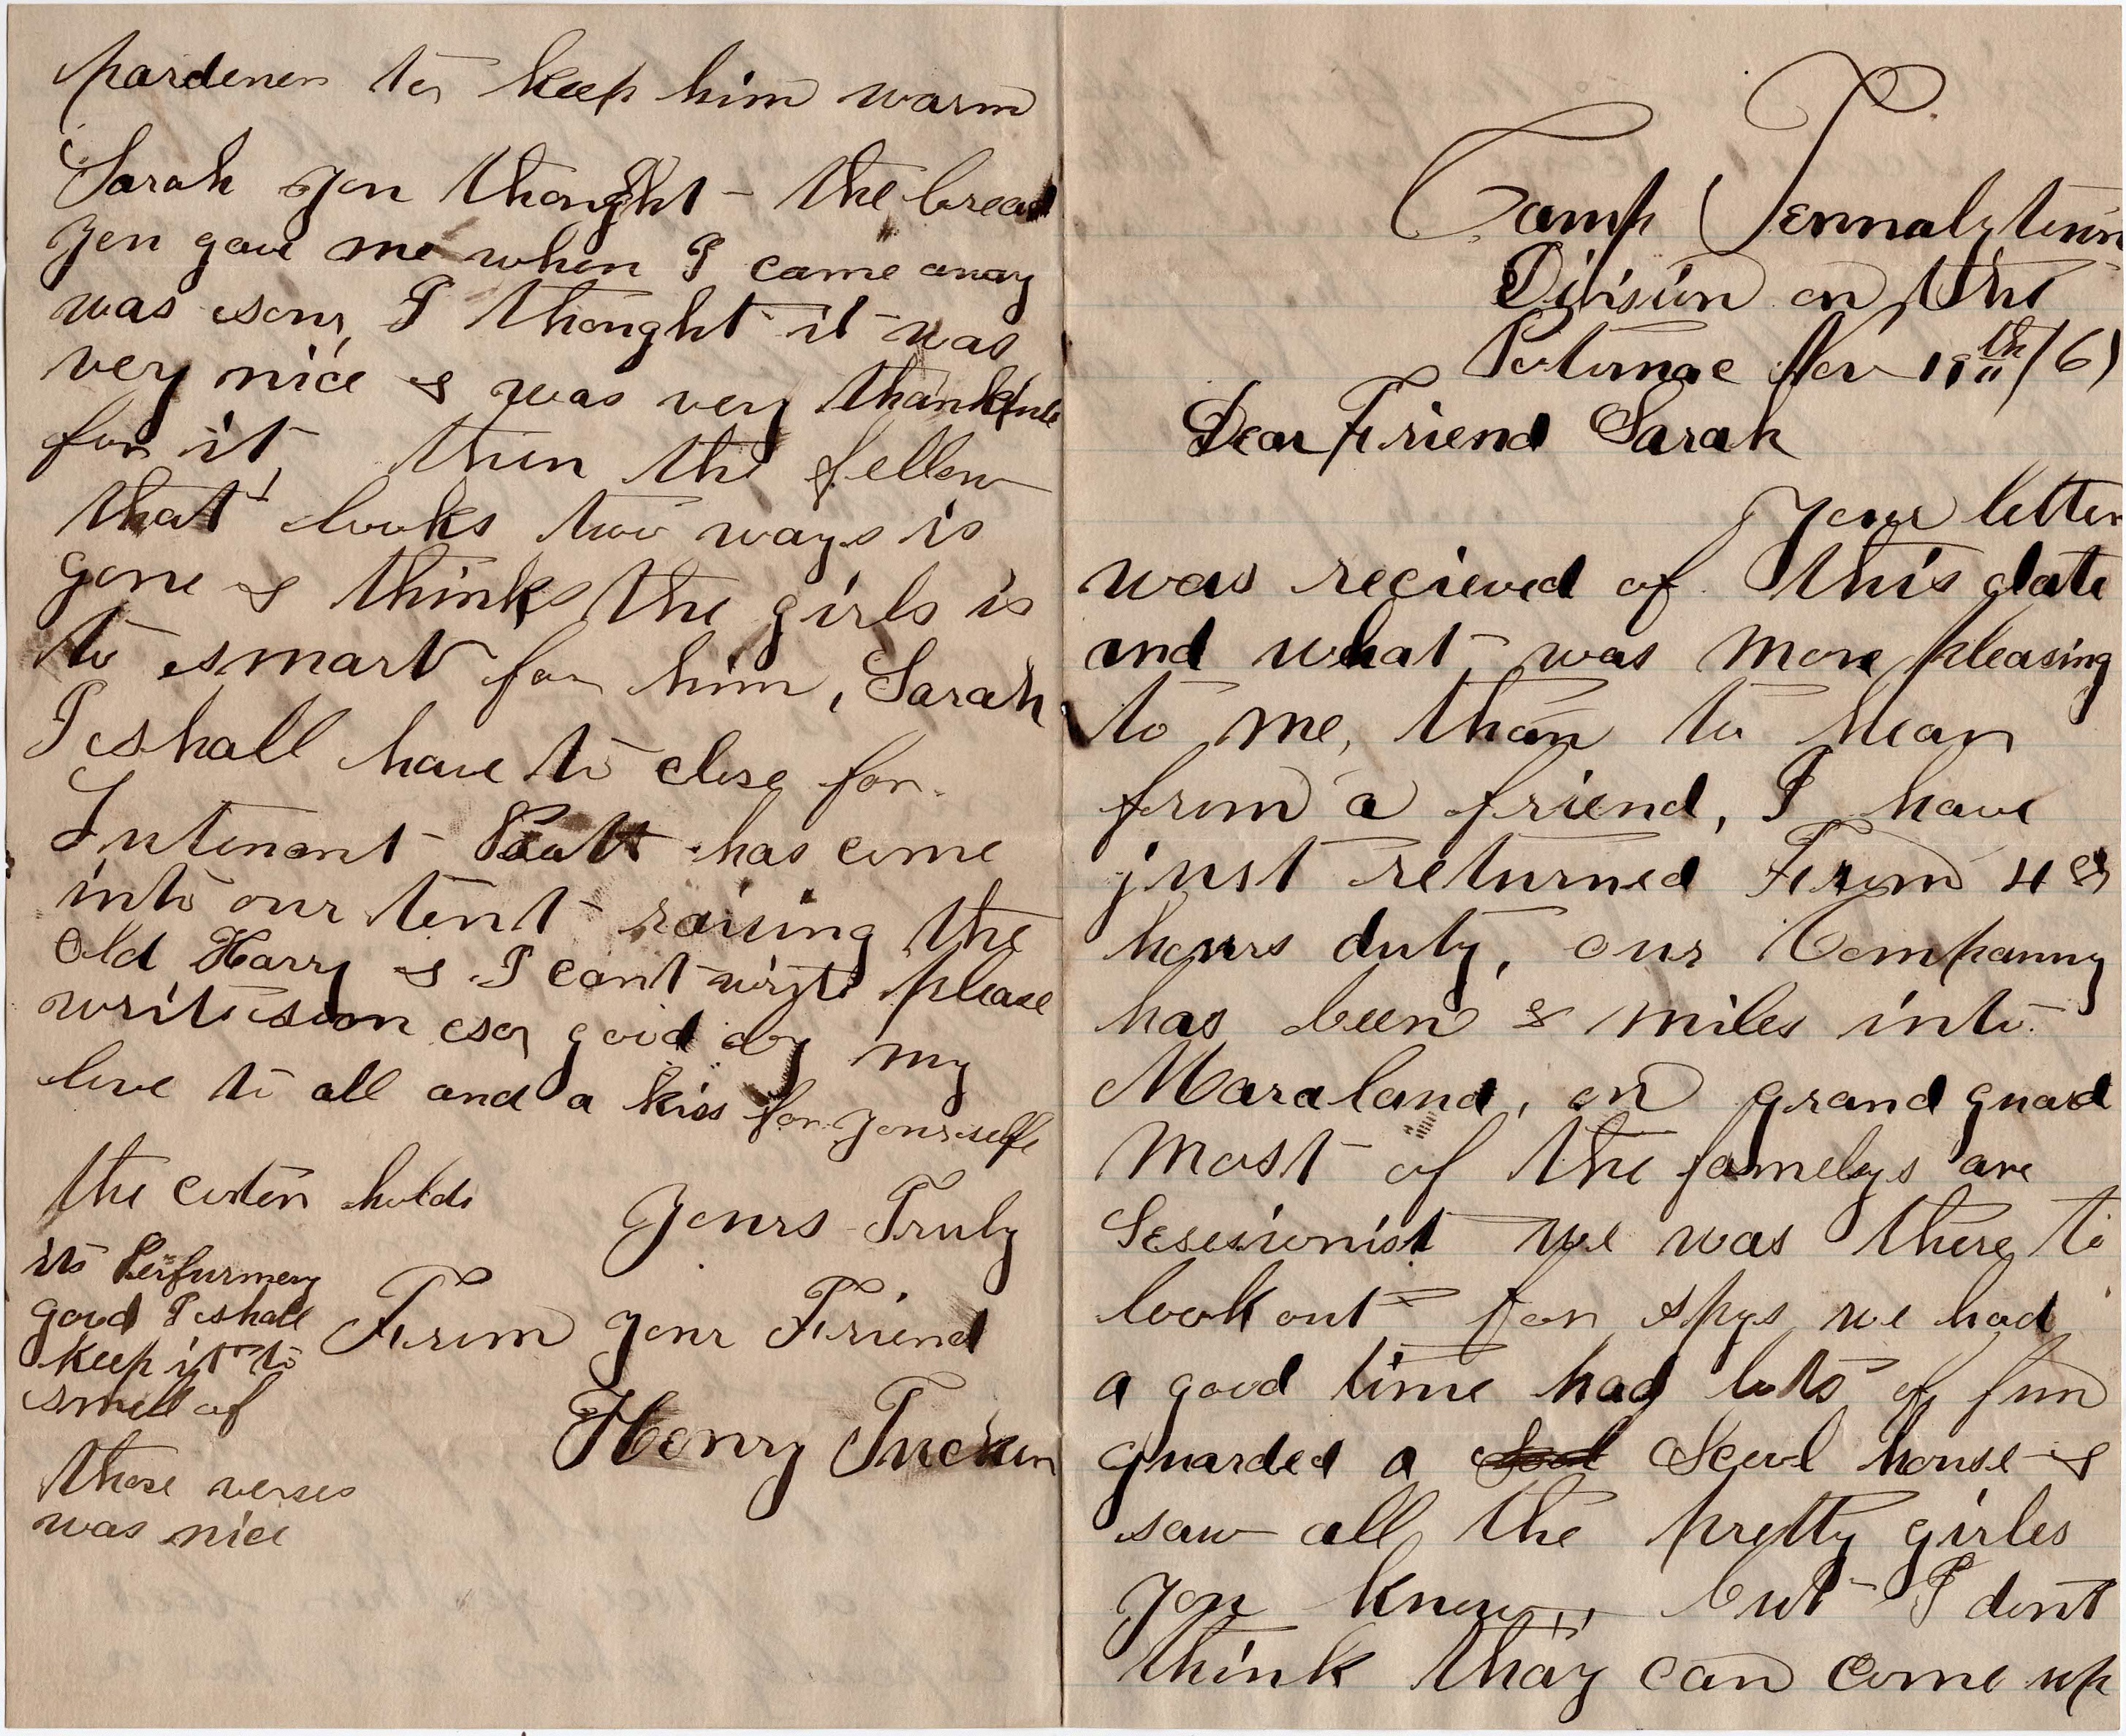 Camp Tennalytown
Division on the
Potomac Nov 18th /61
Dear Friend Sarah
your letter
was recieved of this date
and what was more pleasing
to me, than to hear
from a friend, I have
just returned From 48
hours duty, our Companny
has been 8 miles into
Maraland, on grand guard
Most of the famelys are
Sesesionist we was there to
look out for spys we had
a good time had lots of fun
guarded a Scool house &
saw all the pretty girles
you know, but I dont
think thay can come up
pardener to keep him warm
Sarah you thought the bread
you gave me when I came away
was sour, I thought it was
very nice & was very thankfule
for it, then the fellow
that looks two ways is
gone & thinks the girls is
to smart for him, Sarah
I shall have to close for
Lutenant has come
into our tent raising the
Old Harry & I cant write please
write soon so good by my
love to all and a kiss for yourselfe
Yours Truly
From your Friend
Henry Tucker
the holds
its Perfurmery
good I shall
keep it to
smell of
those verses
was nice